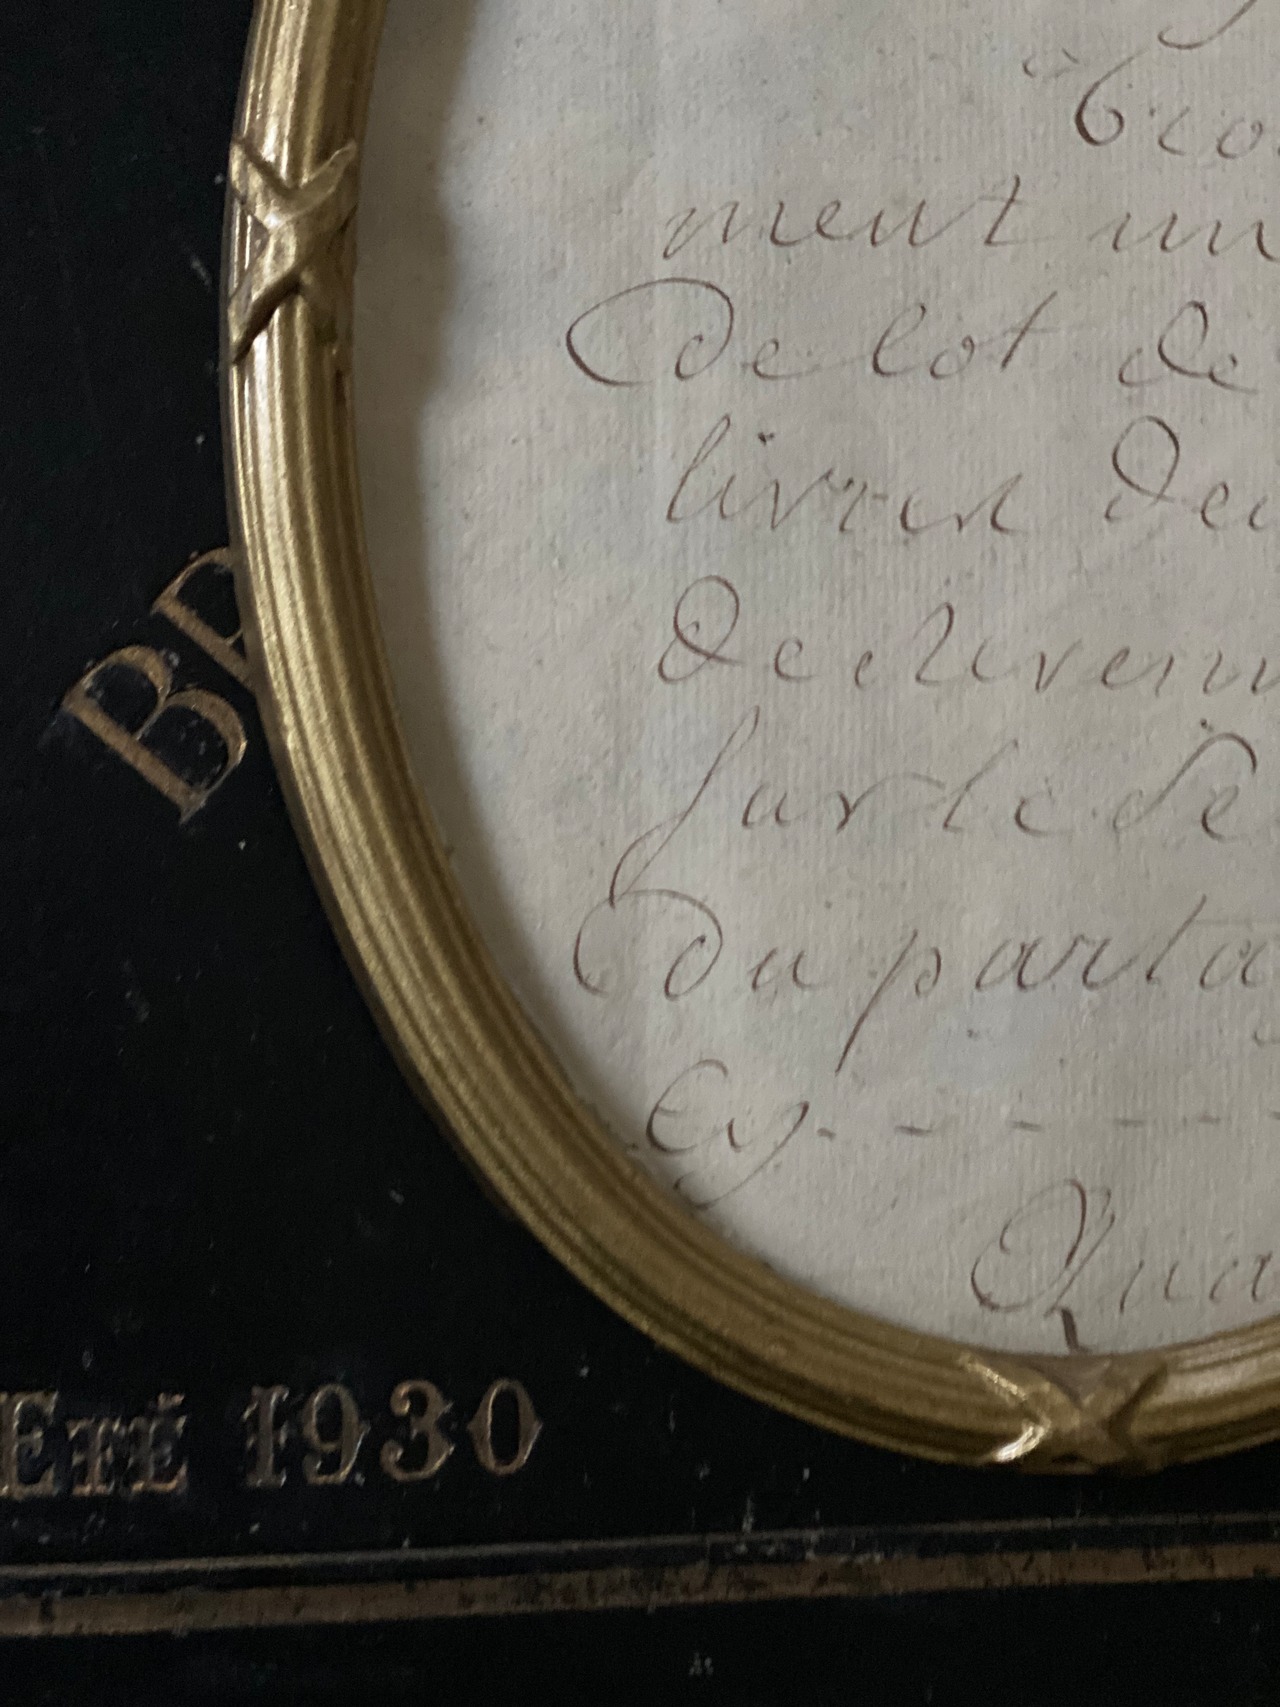 Croi
ment un
De lot de
livres de
De revenu
Sur le de
Du parta
Cy - - - -
Qua
BR
ÉTÉ 1930